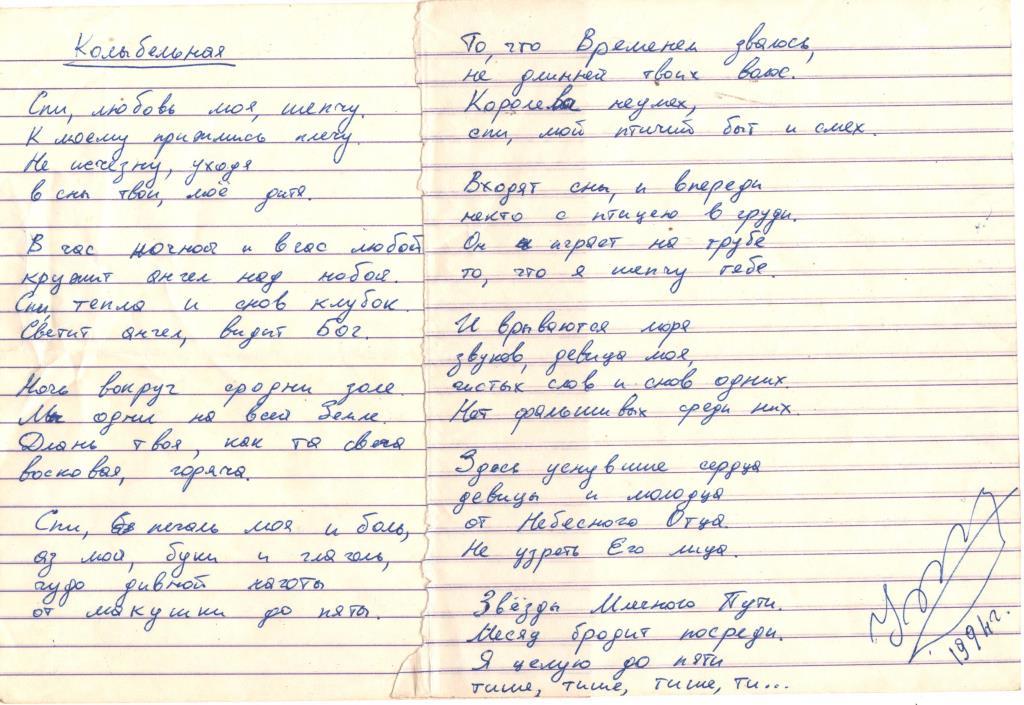 Колыбельная
Спи, любовь моя, шепчу.
К моему прижмись плечу.
Не исчезну, уходя
в сны твои, моё дитя.
В час ночной и в час любой
кружит ангел над тобой.
Спи, тепла и снов клубок.
Светит ангел, видит Бог.
Ночь вокруг сродни золе.
Мы одни на всей Земле.
Длань твоя, как та свеча
восковая, горяча.
Спи, печаль моя и боль,
аз мой, буки и глаголь,
чудо дивной наготы
от макушки до пяты.
То, что Временем звалось,
не длинней твоих волос.
Королева неумех,
спи, мой птичий быт и смех.
Входят сны, и впереди
некто с птицею в груди.
Он играет на трубе
то, что я шепчу тебе.
И врываются моря
звуков, девица моя,
чистых слов и снов одних.
Нет фальшивых среди них.
Здесь уснувшие сердца
девицы и молодца
от Небесного Отца.
Не узреть Его лица.
Звёзды Млечного Пути.
Месяц бродит посреди.
Я целую до пяти
тише, тише, тише, ти...
1994г.